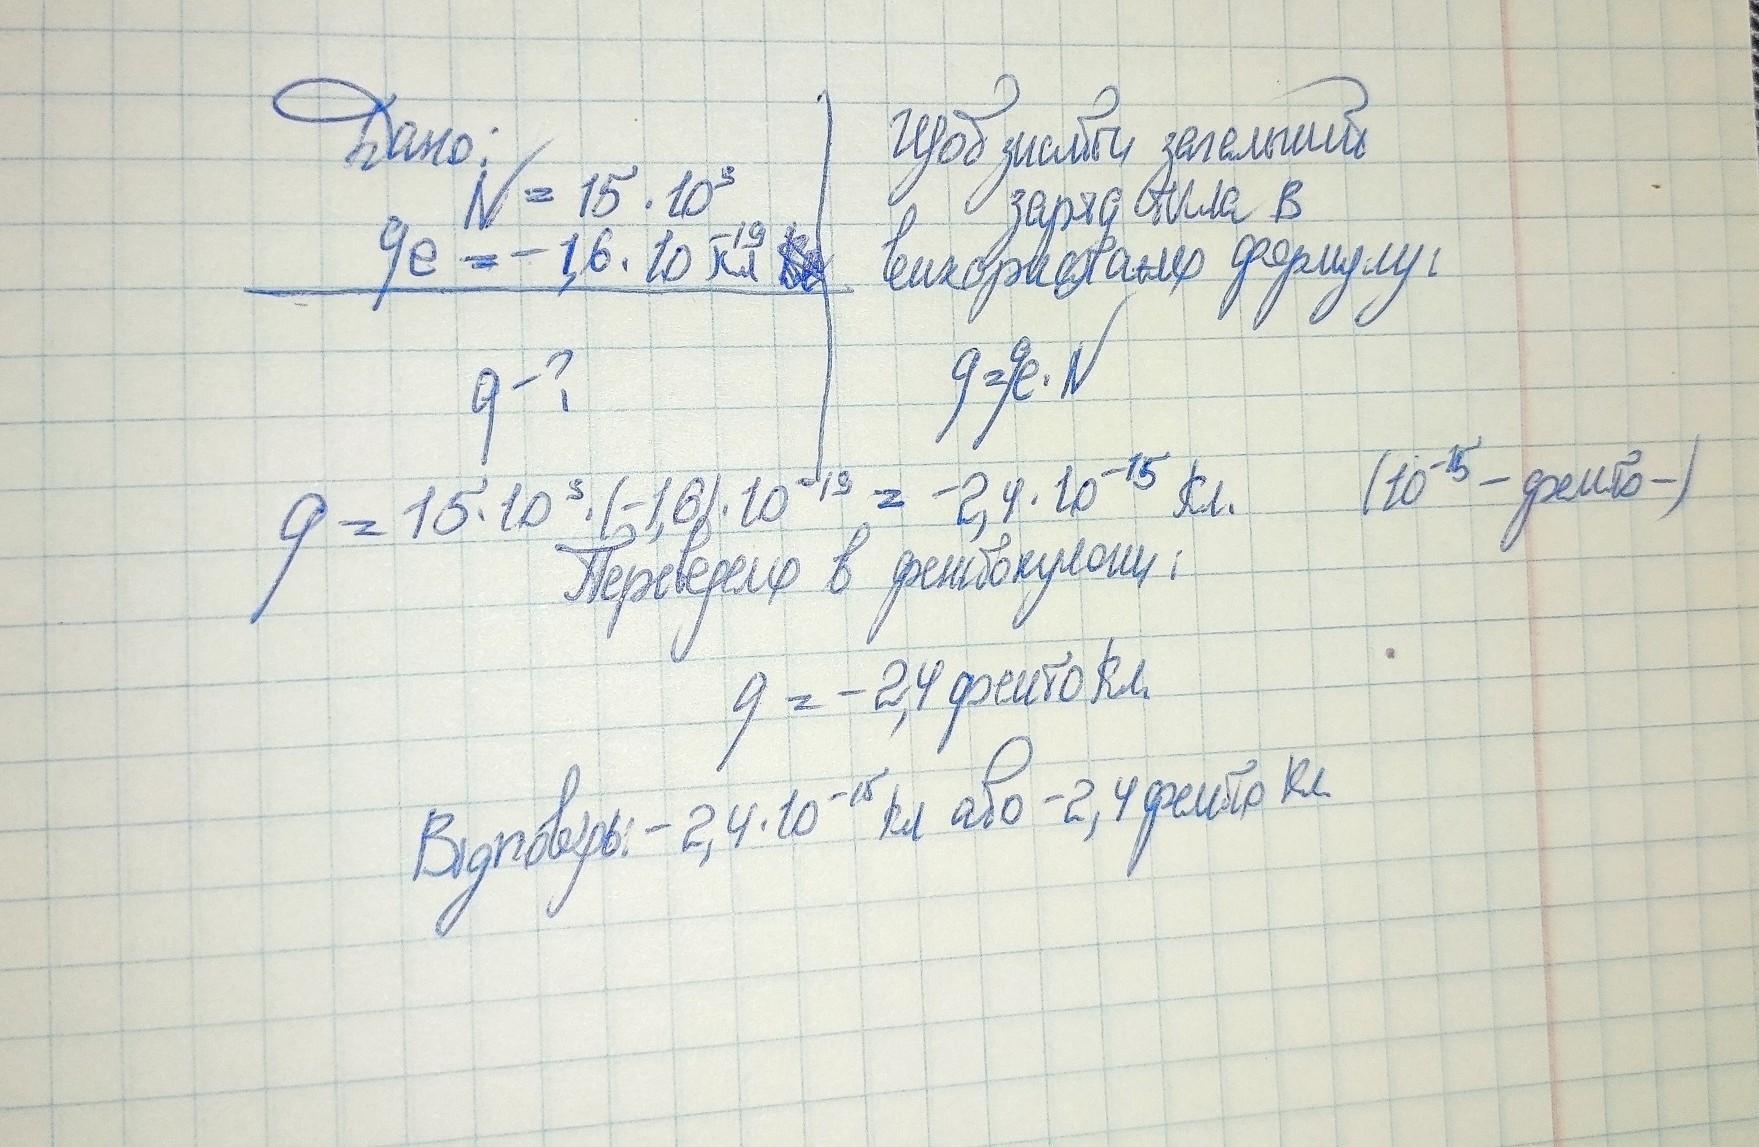 Дано:
N = 15 · 10³
qe = -1,6 · 10⁻¹⁹ Кл
q - ?
Щоб знайти загальний
заряд тіла в
використаємо формулу:
q = qe · N
q = 15 · 10³ · (-1,6) · 10⁻¹⁹ = -2,4 · 10⁻¹⁵ Кл. (10⁻¹⁵ - фемто-)
Переведемо в фемтокулони:
q = -2,4 фемто Кл.
Відповідь: -2,4 · 10⁻¹⁵ Кл або -2,4 фемто Кл.